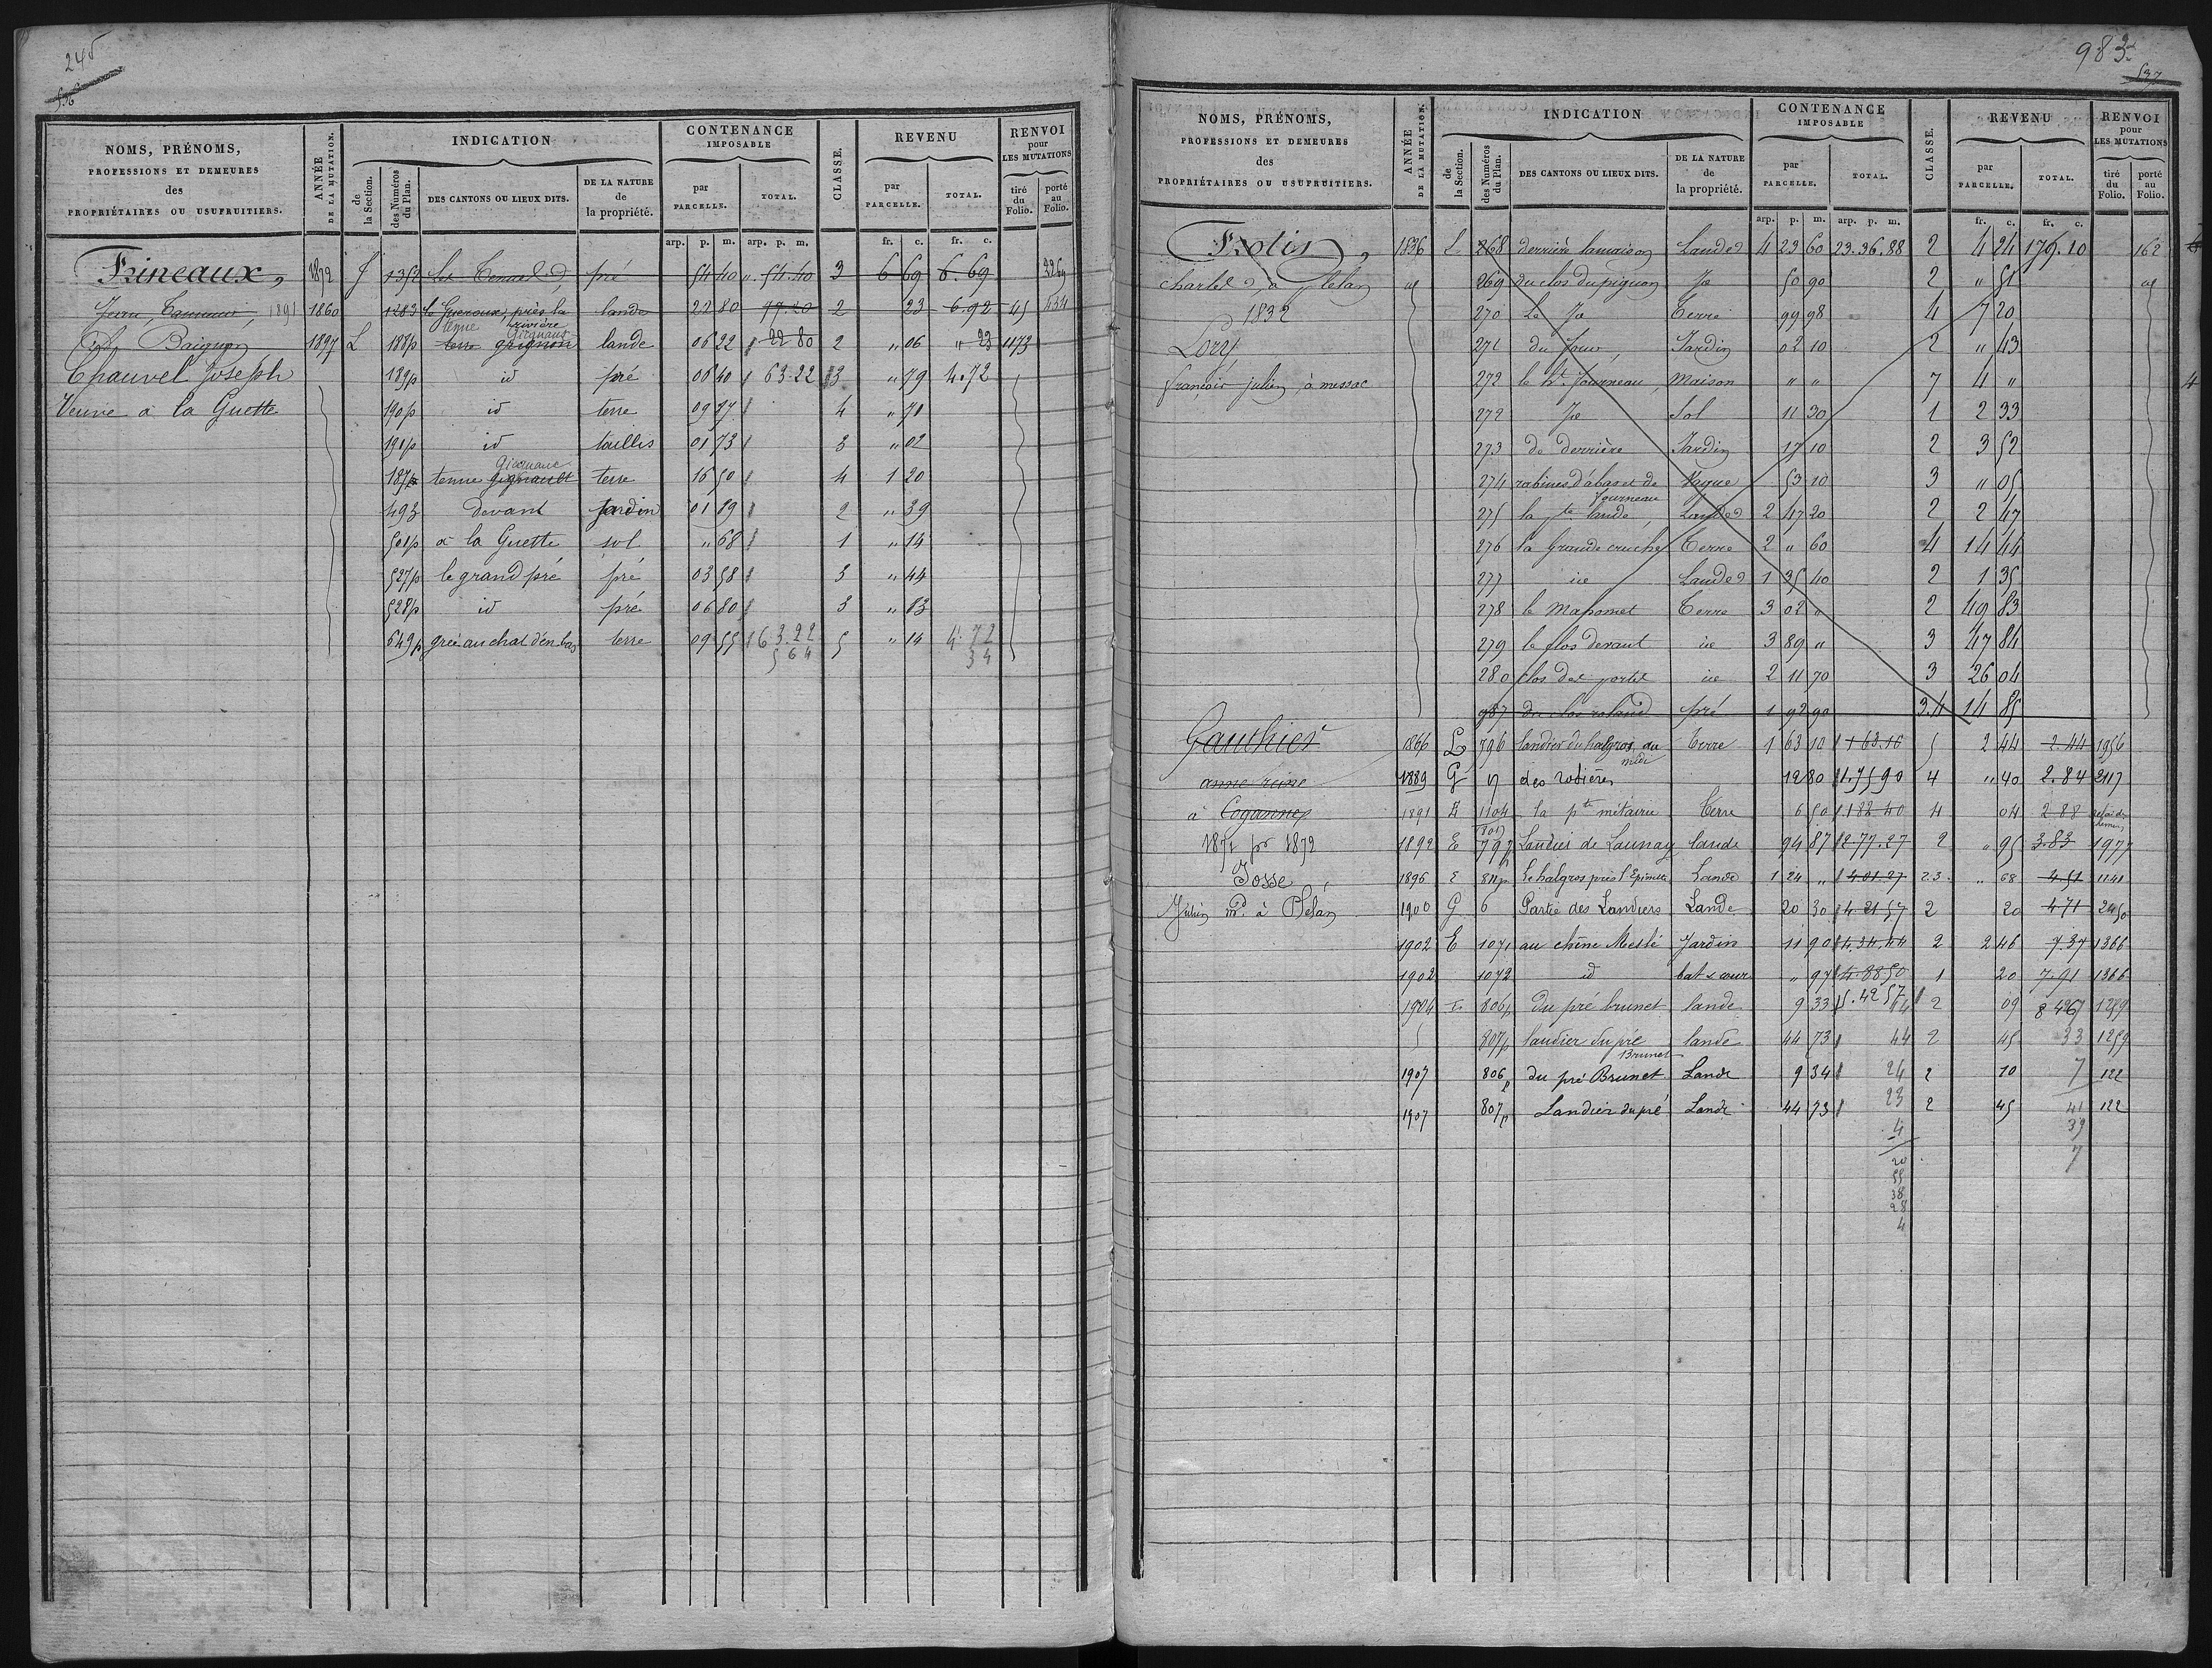 245
536
NOMS, PRÉNOMS,
PROFESSIONS ET DEMEURES
des
PROPRIÉTAIRES OU USUFRUITIERS.
ANNÉE DE LA MUTATION.
INDICATION
de la Section.
des Numéros du Plan.
DES CANTONS OU LIEUX DITS.
DE LA NATURE de la propriété.
CONTENANCE IMPOSABLE
par PARCELLE.
TOTAL.
CLASSE.
REVENU
par PARCELLE.
TOTAL.
RENVOI pour LES MUTATIONS
tiré du Folio.
porté au Folio.
arp. p. m. arp. p. m. fr. c. fr. c.
Frineaux, 1872 1352 pré 54 40 54.40 3 6 69 6.69
1891 1860 1283 près la rivière lande 22 80 77.20 2 23 6.92 45 434
Baignon 1897 L 188p tenue Gicquaux lande 06 22 22 80 2 " 06 " 23 1173
Chauvel Joseph 189p id pré 06 40 63.22 3 " 79 4.72
Veuve à la Guette 190p id terre 09 87 4 " 71
191p id taillis 01 73 3 " 02
187p tenue Gicquaux terre 16 50 4 1 20
493 Devant jardin 01 89 2 " 39
501p à la Guette sol " 68 1 " 14
527p le grand pré pré 03 58 3 " 44
528p id pré 06 80 3 " 83
649p grée au chat d'en bas terre 09 55 63.22 5 " 14 4.72
5 64 34
983
537
NOMS, PRÉNOMS,
PROFESSIONS ET DEMEURES
des
PROPRIÉTAIRES OU USUFRUITIERS.
ANNÉE DE LA MUTATION.
INDICATION
de la Section.
des Numéros du Plan.
DES CANTONS OU LIEUX DITS.
DE LA NATURE de la propriété.
CONTENANCE IMPOSABLE
par PARCELLE.
TOTAL.
CLASSE.
REVENU
par PARCELLE.
TOTAL.
RENVOI pour LES MUTATIONS
tiré du Folio.
porté au Folio.
arp. p. m. arp. p. m. fr. c. fr. c.
Frotin, 1836 L 268 derrière la maison Landes 4 23 60 23.36.88 2 4 24 179.10 162
à plelan 269 du clos du pignon 50 90 2 " 51
1832 270 Le Terre 99 98 4 7 20
Lory 271 du four Jardin 02 10 2 " 43
françois julien à messac 272 le ht fourneau maison " " 7 4 "
272 Sol 11 30 1 2 33
273 de derrière Jardin 17 10 2 3 52
274 rabines d'abas et de fourneau Vague 53 10 3 " 05
275 la pte lande Landes 2 47 20 2 2 47
276 la Grande cruche Terre 2 " 60 4 14 44
277 id Landes 1 35 40 2 1 35
278 le mahomet Terre 3 02 " 2 49 83
279 le clos devant id 3 89 " 3 47 84
280 clos des portes id 2 11 70 3 26 04
987 du clos roland pré 1 92 90 3.4 14 85
Gauthier 1866 L 796 landier du halgros du midi Terre 1 63 10 1 63.10 5 2 44 2.44 1956
anne reine 1889 G 7 des rosières 12 80 1.75 90 4 " 40 2.84 2117
à 1891 E 1104 la pte métairie Terre 6 50 1.82 40 4 04 2 88
1871 pr 1872 1892 E 797 Landier de Launay lande 94 87 2.77.27 2 " 95 3.83 1977
Josse, 1896 E 811p Le halgros près l'Epinette Lande 1 24 " 4 01 27 2.3 " 68 4.51 1141
Julien md à Plélan 1900 G 6 Partie des Landiers Lande 20 30 4.21 57 2 20 4 71 2450
1902 E 1071 au chêne Meslé Jardin 11 90 4.34.44 2 2 46 7.37 1366
1902 1072 id bat & cour " 97 4.88 50 1 20 7.91 1366
1904 E 806p du pré brunet lande 9 33 5.42 57 2 09 8 1259
807p landier du pré Brunet lande 44 73 44 2 45 33 1259
1907 806p du pré Brunet Lande 9 34 24 2 10 7 122
1907 807p Landier du pré Lande 44 73 23 2 45 41 122
4 39
20 7
55
38
28
4